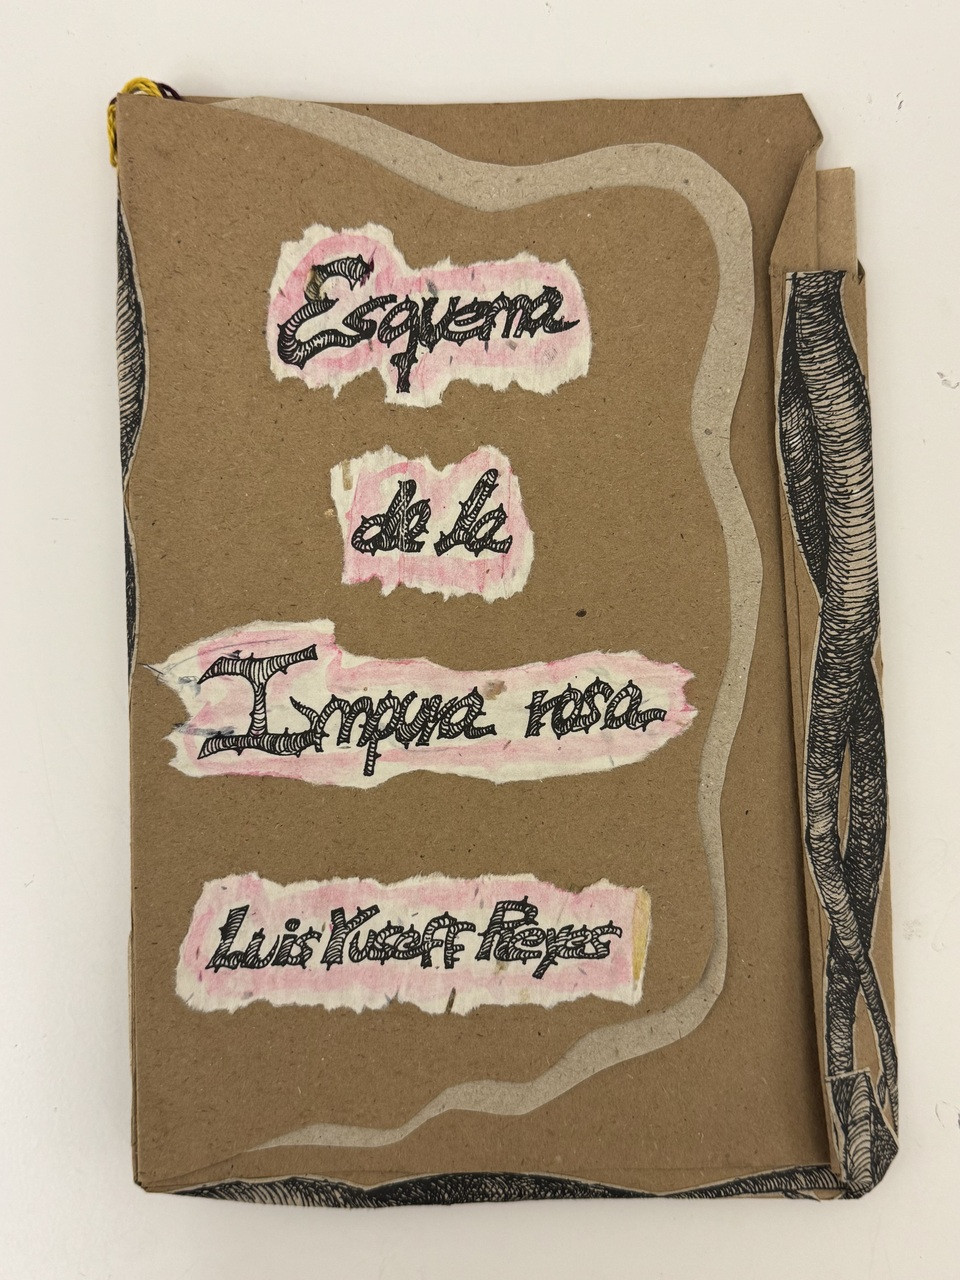 Esquema
de la
Impura rosa
Luis Yuseff Reyes